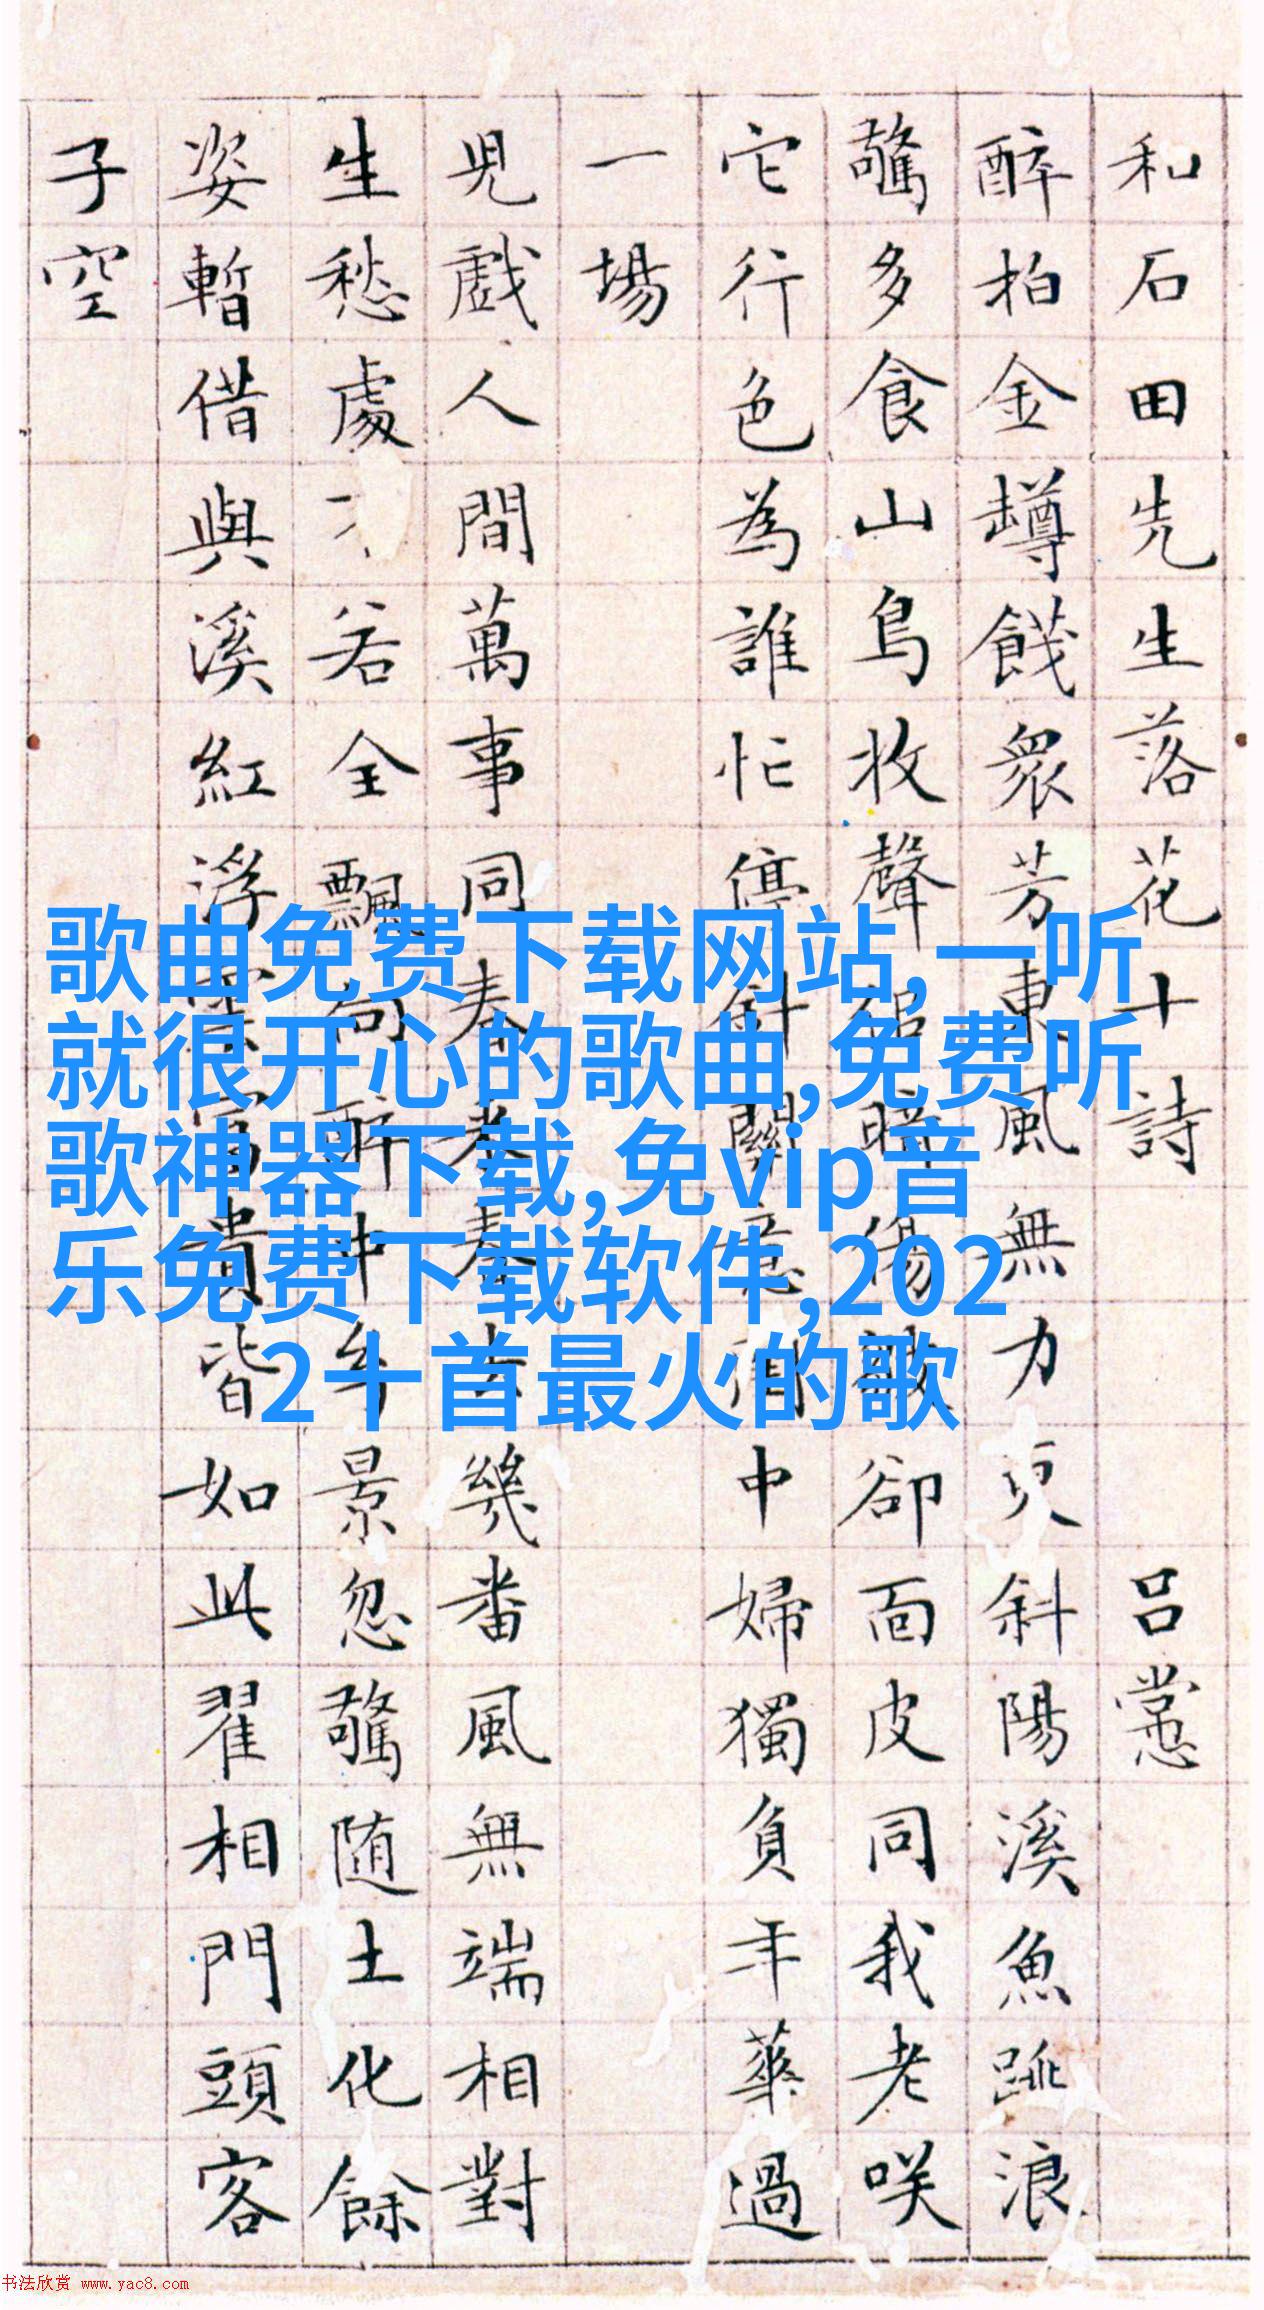 和石田先生落花十詩 呂㦂
醉拍金罇餞衆芳東風無力更斜陽溪魚跳浪
驚多食山鳥收聲 傷 卻面皮同我老咲
它行色為誰忙停針 意 中婦獨負年華過
一場
児戲人間萬事同春 春去幾番風無端相對
生愁處 若全飄 向酢中年景忽驚随土化餘
姿暫借與溪紅浮 富貴皆如此翟相門頭客
子空
歌曲免费下载网站,一听
就很开心的歌曲,免费听
歌神器下载,免vip音
乐免费下载软件,202
2十首最火的歌
书法欣赏 www.yac8.com